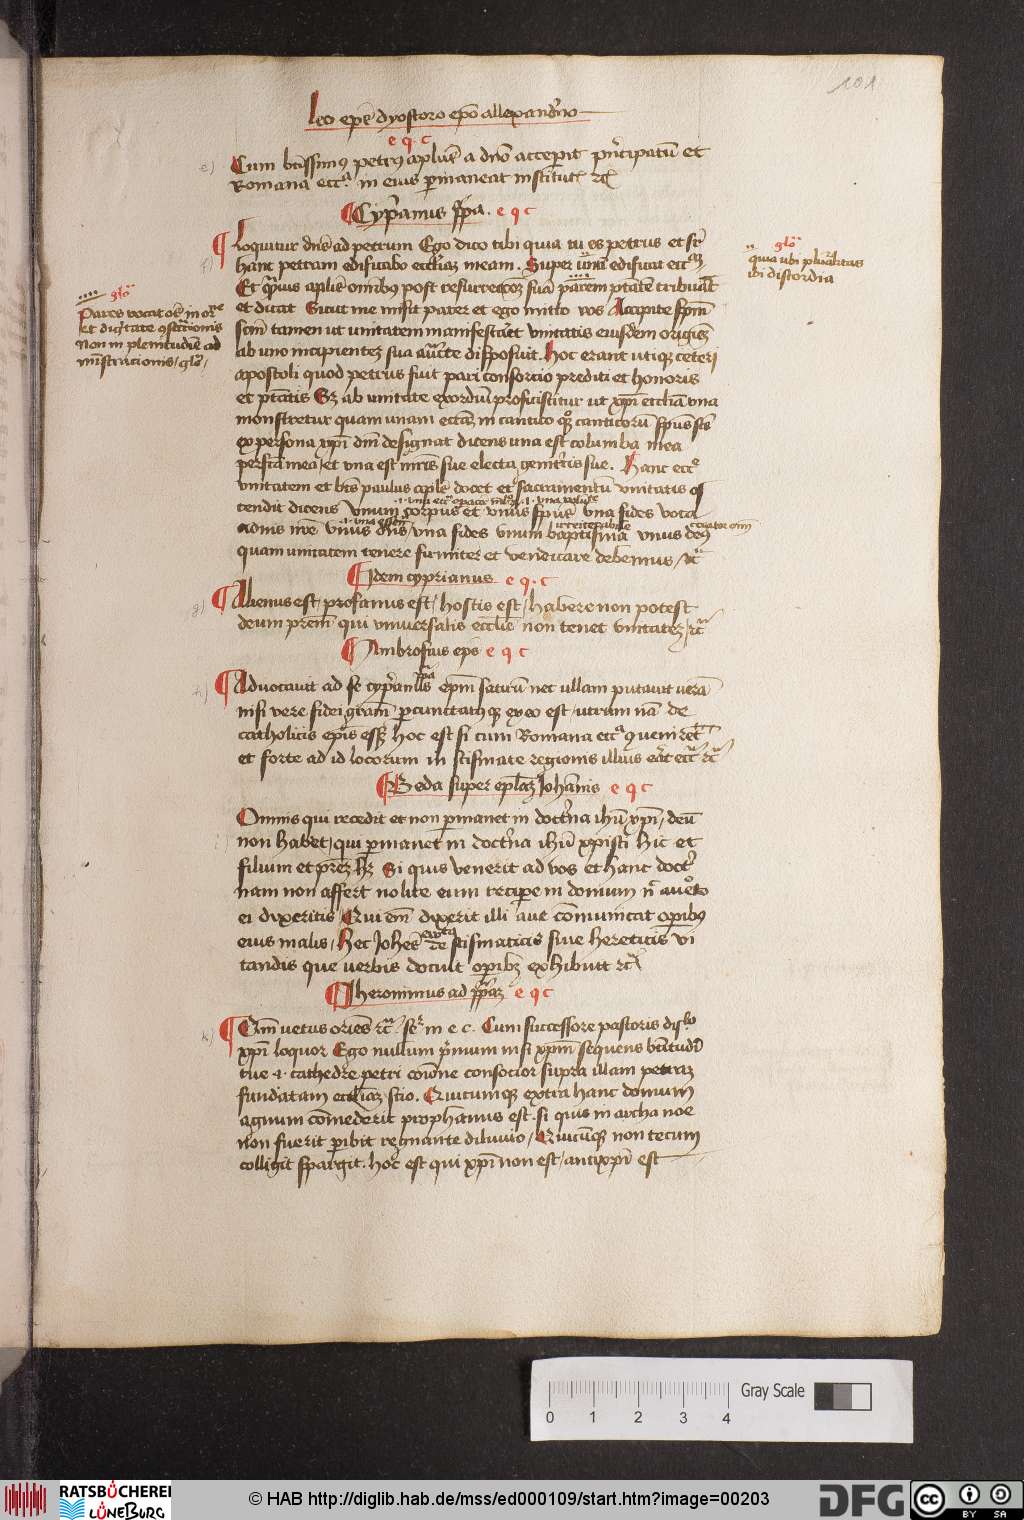 101
Leo epc dyostoro epo allexandrno
e q c
Cum btissimus petrus aplus a dno accepit principatu et
Romana ecca in eius permaneat institut rc
Cyprianus ppa . e q c
Loquitur dns ad petrum Ego dico tibi quia tu es petrus et sr
hanc petram edificabo eccliaz meam . Super unu edificat ecc
glo
quia ubi pluralitas
ibi discordia
Et quis aplis onibus post resurreccoez sua parem ptate tribuat
et dicat Sicut me misit pater et ego mitto vos Accipite spm
scm tamen ut unitatem manifestaret unitatis eiusdem origiez
ab uno incipientez sua aucte disposuit . Hoc erant utique ceteri
glo
Pares vocat os in ore
et dignitate
non in plenitudie ad
mistracionis / glo /
apostoli quod petrus fuit pari consorcio prediti et honoris
et ptatis Sz ab unitate exordiu proficiscitur ut xpi ecclia una
monstretur quam unam eccaz in cantico canticoru spus scs
ex persona xpi dni designat dicens una est columba mea
perfcta mea / et una est mris sue electa genitricis sue . Hanc ecce
unitatem et bts paulus apls docet et sacramentu unitatis os
tendit dicens unum corpus et unus spus una fides vota
adnis nre unus dns / una fides unum baptisma unus deus
quam unitatem tenere firmiter et vendicare debemus / rc
Idem cyprianus e q . c
Alienus est / profanus est / hostis est / habere non potest
deum prem qui universalis ecclie non tenet unitatez / rc
Ambrosius eps e q c
Advocavit ad se epm saturu nec ullam putavit vera
nisi vere fidei gram percunctatusque ex eo est / utrum na de
catholicis epis esset hoc est si cum Romana ecca
et forte ad id locorum in scismate regionis illius erat ecc rc
Beda super eplaz Johannis e q c
Omnis qui recedit et non permanet in doctrina ihu xpi / deu
non habet / qui permanet in doctrina ihu xpisti hic et
filium et prez hz Si quis venerit ad vos et hanc doctri
nam non affert nolite eum recipe in domum
ei dixeritis / Qui em dixerit illi ave comunicat operibus
eius malis / Hec Johes de scismaticis sive hereticis vi
tandis que verbis docuit operibz exhibuit rc
Iheronimus ad ppaz e q c
Qm vetus oriens rc / m e c . Cum successore pastoris
xpi loquor Ego nullum primum nisi xpm sequens btitudi
tue i . cathedre petri coione consocior supra illam petraz
fundatam eccliaz scio . Quicumque extra hanc domum
agnum comederit prophanus est . si quis in archa noe
non fuerit peribit regnante diluvio / Quicumque non tecum
colligit spargit . hoc est qui xpi non est / antixpi est
0 1 2 3 4
Gray Scale
RATSBÜCHEREI
LÜNEBURG
© HAB http://diglib.hab.de/mss/ed000109/start.htm?image=00203
DFG
cc BY SA